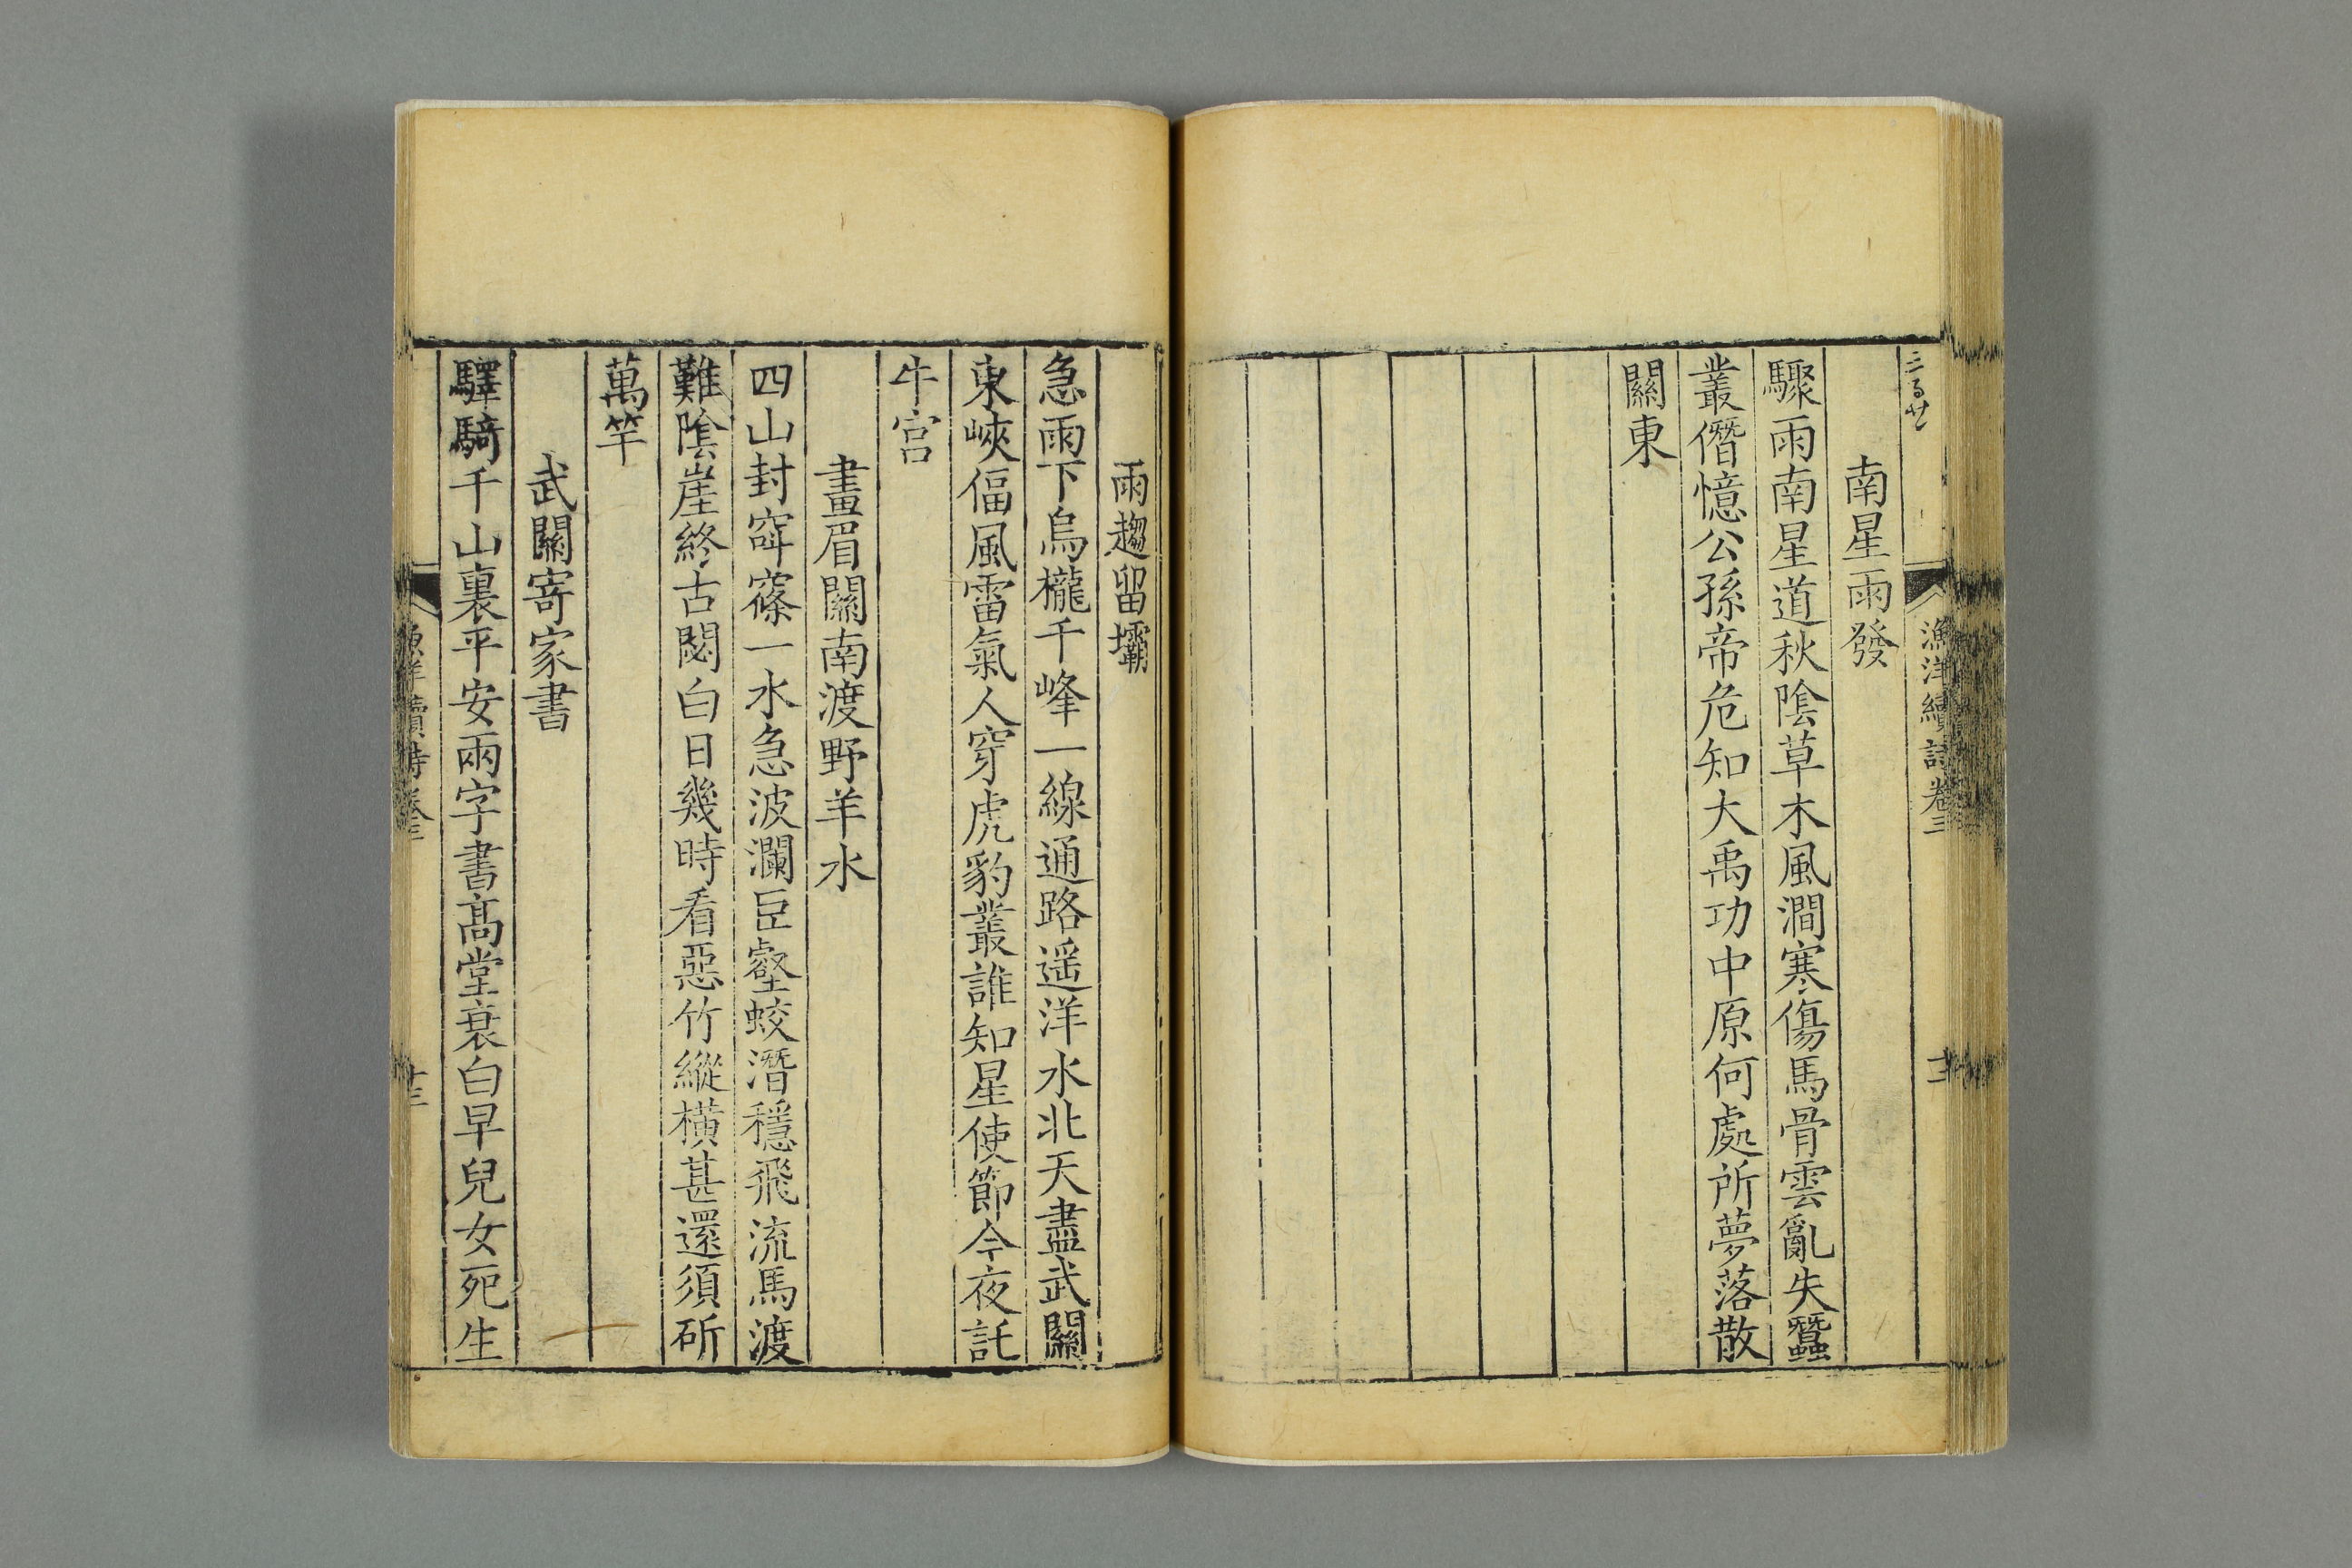 漁洋續詩卷三
十二
南星雨發
驟雨南星道秋陰草木風澗寒傷馬骨雲亂失蠶
叢僭憶公孫帝危知大禹功中原何處所夢落散
關東
雨趨留壩
急雨下烏櫳千峰一線通路遥洋水北天盡武關
東峽偪風雷氣人穿虎豹叢誰知星使節今夜託
牛宫
畫眉關南渡野羊水
四山封窱窱一水急波瀾巨壑蛟潛穩飛流馬渡
難陰崖終古閟白日幾時看惡竹縱橫甚還須斫
萬竿
武關寄家書
驛騎千山裏平安兩字書髙堂衰白早兒女死生
漁洋續詩卷三
十三